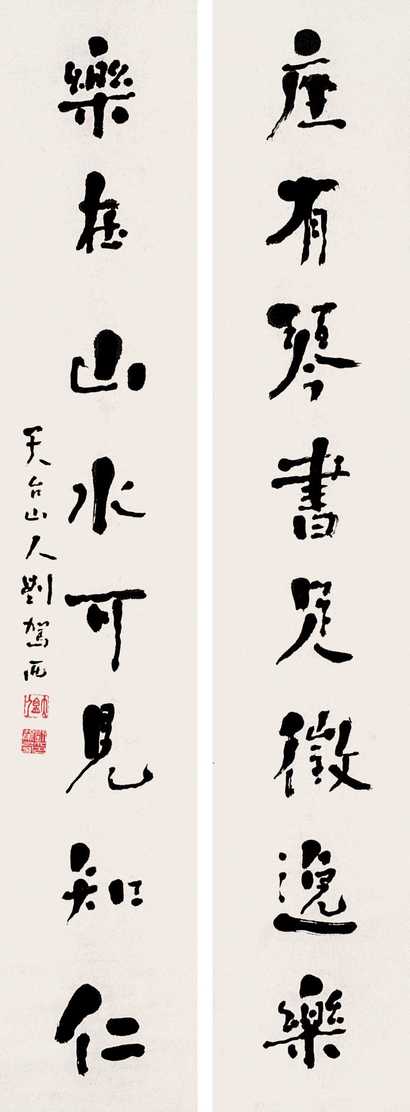 座有琴書足徵逸樂
樂在山水可見知仁
天台山人劉